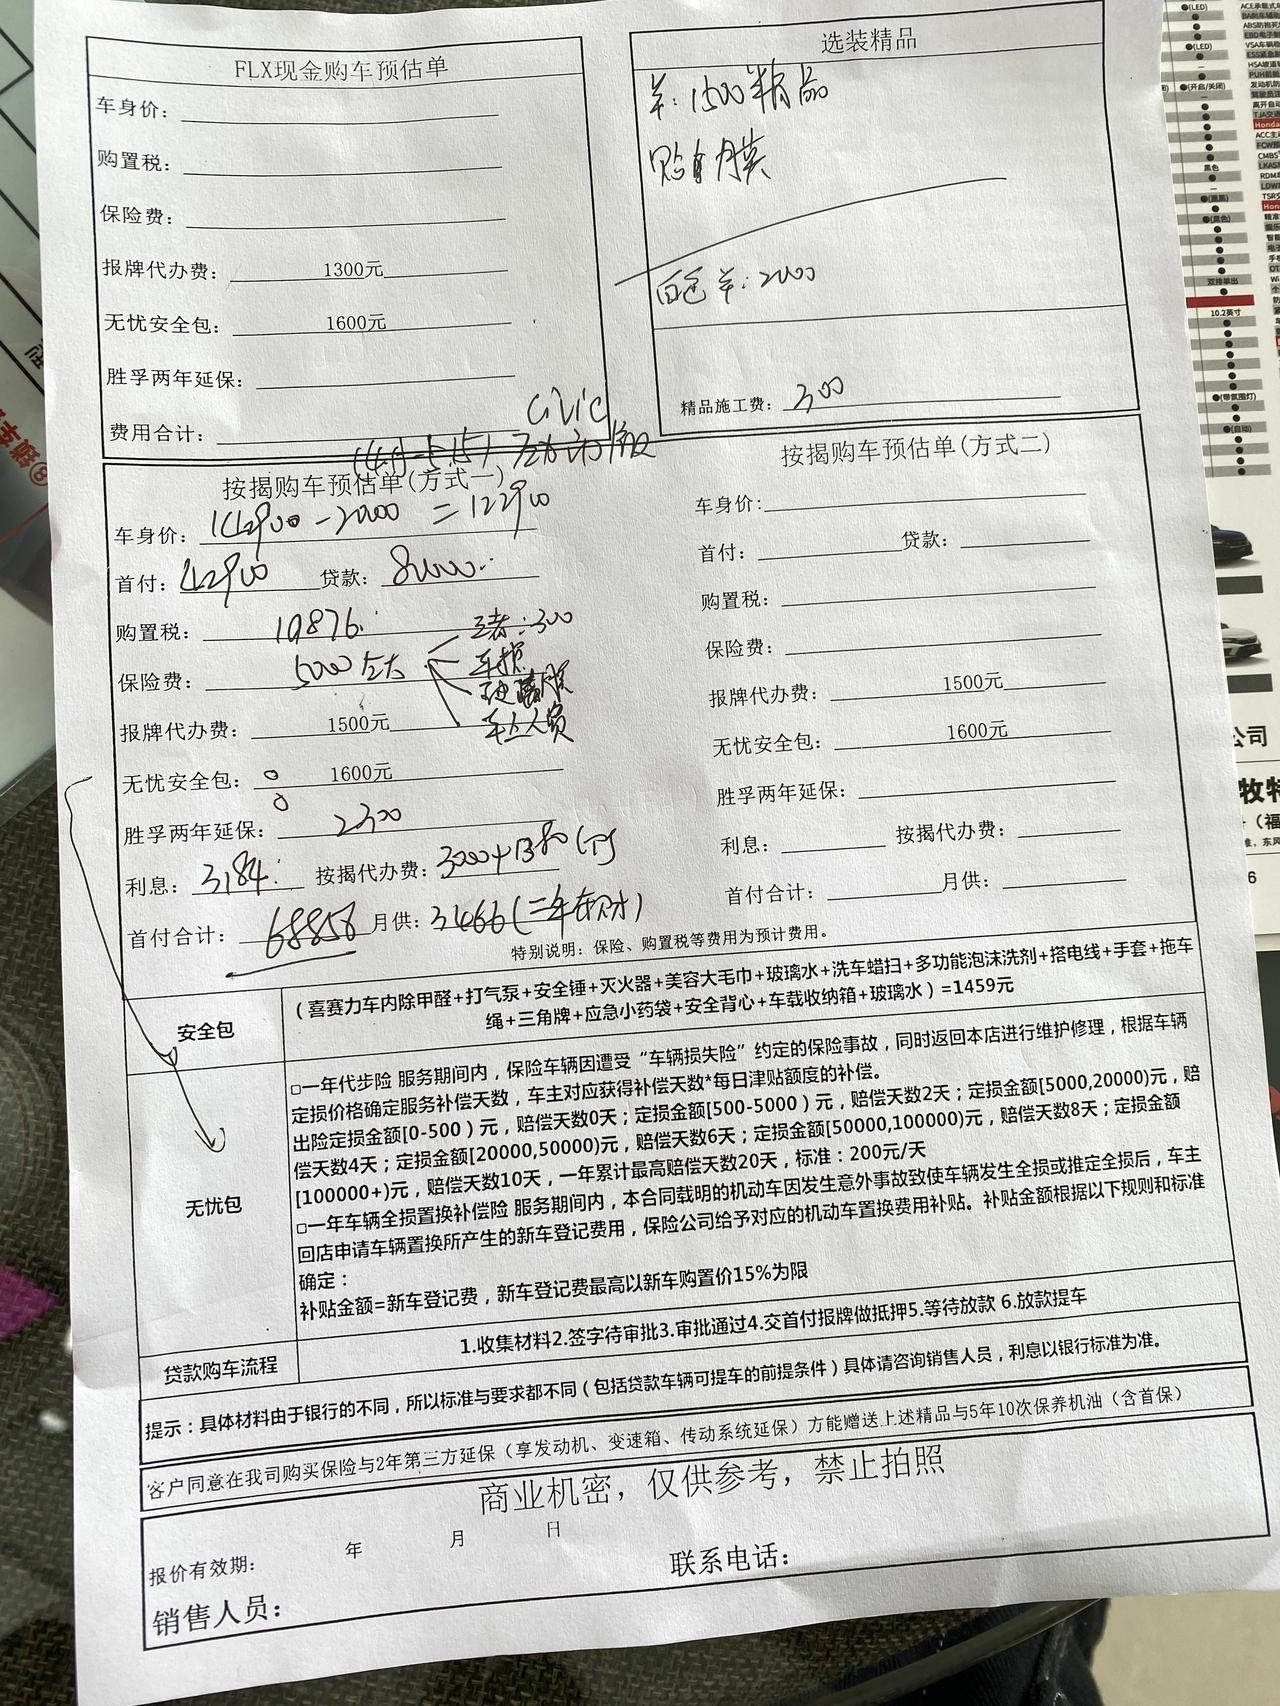 FLX现金购车预估单
车身价:
购置税:
保险费:
报牌代办费: 1300元
无忧安全包: 1600元
胜孚两年延保:
费用合计:
选装精品
羊: 1500精品
贴膜
白色羊: 2000
精品施工费: 300
civic
按揭购车预估单(方式一)
车身价: 142900-20000=122900
首付: 42900 贷款: 80000
购置税: 10876
保险费: 5000左右
三者: 300
车损
车上人员
报牌代办费: 1500元
无忧安全包: 1600元
胜孚两年延保: 2300
利息: 3184 按揭代办费: 3000+1380
首付合计: 68856 月供: 3466
按揭购车预估单(方式二)
车身价:
首付: 贷款:
购置税:
保险费:
报牌代办费: 1500元
无忧安全包: 1600元
胜孚两年延保:
利息: 按揭代办费:
首付合计: 月供:
特别说明: 保险、购置税等费用为预计费用。
安全包
(喜赛力车内除甲醛+打气泵+安全锤+灭火器+美容大毛巾+玻璃水+洗车蜡扫+多功能泡沫洗剂+搭电线+手套+拖车
绳+三角牌+应急小药袋+安全背心+车载收纳箱+玻璃水)=1459元
无忧包
□一年代步险 服务期间内，保险车辆因遭受“车辆损失险”约定的保险事故，同时返回本店进行维护修理，根据车辆
定损价格确定服务补偿天数，车主对应获得补偿天数*每日津贴额度的补偿。
出险定损金额[0-500）元，赔偿天数0天；定损金额[500-5000）元，赔偿天数2天；定损金额[5000,20000)元，赔
偿天数4天；定损金额[20000,50000)元，赔偿天数6天；定损金额[50000,100000)元，赔偿天数8天；定损金额
[100000+)元，赔偿天数10天，一年累计最高赔偿天数20天，标准：200元/天
□一年车辆全损置换补偿险 服务期间内，本合同载明的机动车因发生意外事故致使车辆发生全损或推定全损后，车主
回店申请车辆置换所产生的新车登记费用，保险公司给予对应的机动车置换费用补贴。补贴金额根据以下规则和标准
确定：
补贴金额=新车登记费，新车登记费最高以新车购置价15%为限
贷款购车流程
1.收集材料2.签字待审批3.审批通过4.交首付报牌做抵押5.等待放款 6.放款提车
提示：具体材料由于银行的不同，所以标准与要求都不同（包括贷款车辆可提车的前提条件）具体请咨询销售人员，利息以银行标准为准。
客户同意在我司购买保险与2年第三方延保（享发动机、变速箱、传动系统延保）方能赠送上述精品与5年10次保养机油（含首保）
商业机密，仅供参考，禁止拍照
报价有效期: 年 月 日
销售人员: 联系电话:
10.2英寸
公司